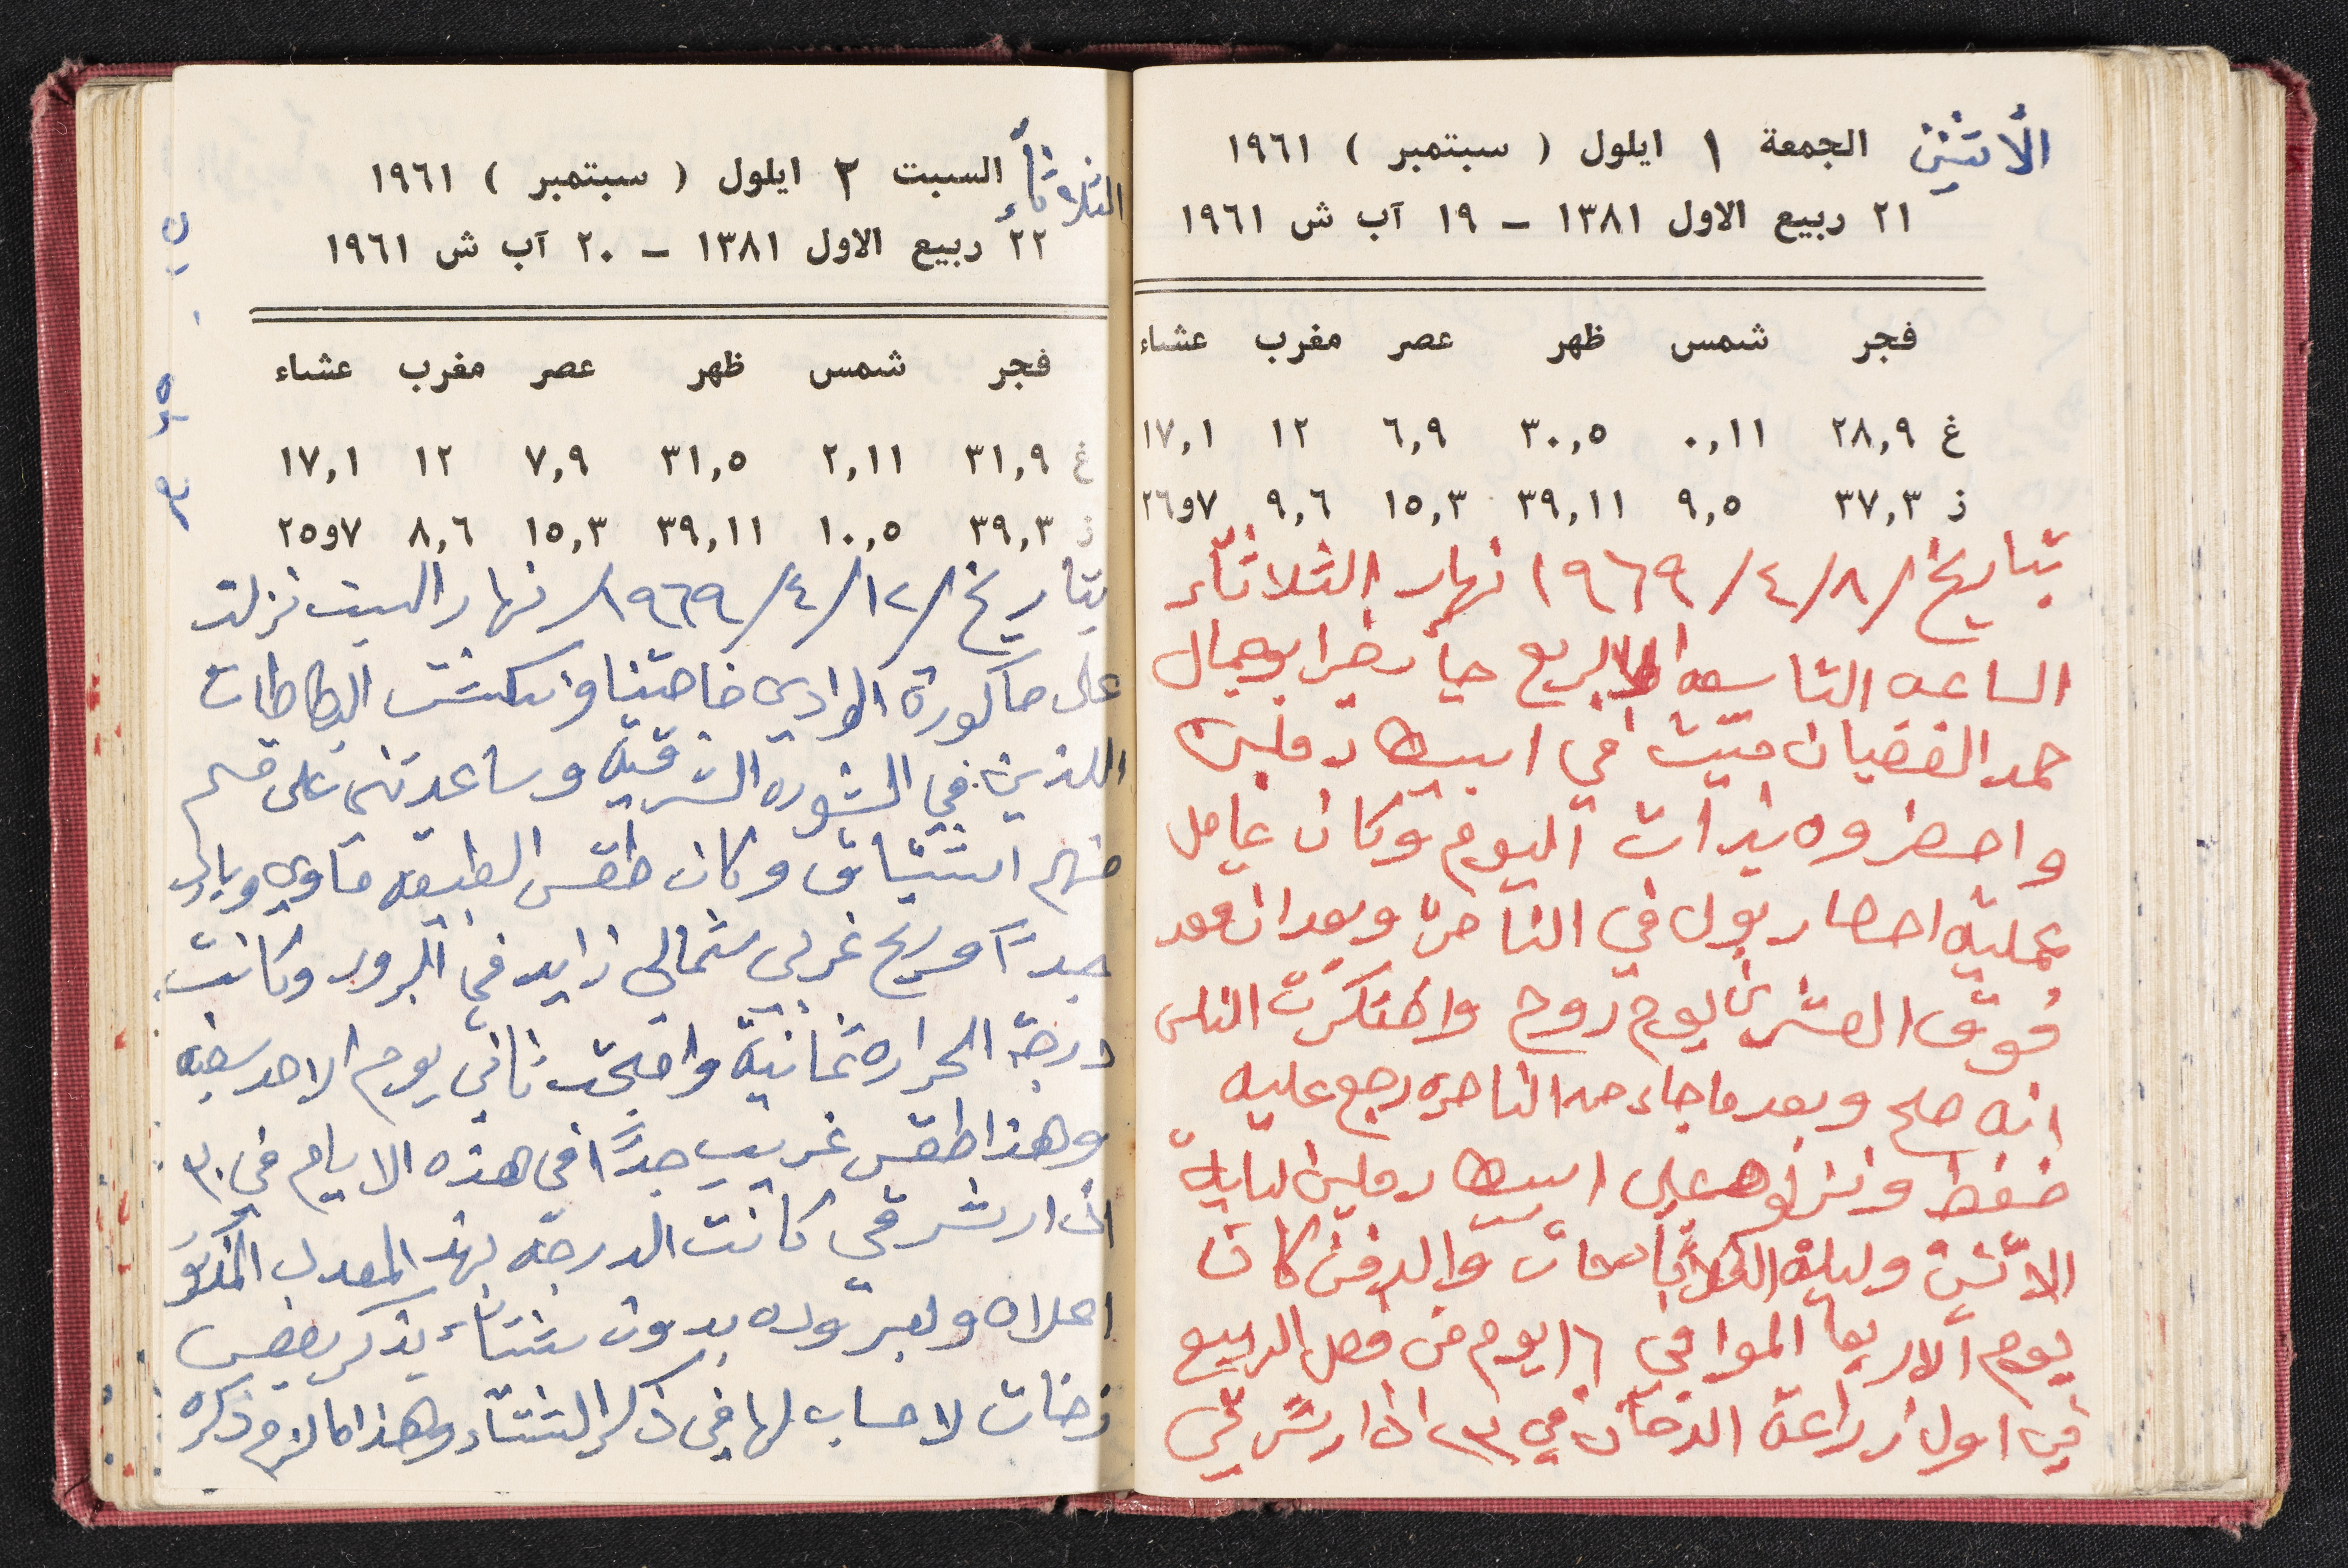 الاثنين الجمعة ١ ايلول ( سبتمبر ) ١٩٦١
٢١ ربيع الاول ١٣٨١ – ١٩ آب ش ١٩٦١
فجر شمس ظهر عصر مغرب عشاء
غ ٢٨,٩ ٠,١١ ٣٠,٥ ٦,٩ ١٢ ١٧,١
ز ٣٧,٣ ٩,٥ ٣٩,١١ ١٥,٣ ٩,٦ ٧و٢٦
بتاريخ /٨/٤/١٩٦٩ نهار الثلاثاء
الساعه التاسعه الا ربع جابو جمال
حمد الغضبان ميت في ابيطار
واحضروه بذات اليوم وكان عامل
عملية احصار بول في الناصرة وبعد ان قعد
فوق العشرين يوم روح وافتكرت الناس
انه صلح وبعد ما جاء من الناصره رجع عليه
ضغط ونزلوه على ابيطار ليلة
الاثنين وليلة الثلاثاء مات والدفن كان
يوم الاربعا الموافي ١٦ يوم من فصل الربيع
في اول زراعة الدخان في ٢٣ اذار شرقي
الثلاثاء السبت ٢ ايلول ( سبتمبر ) ١٩٦١
٢٢ ربيع الاول ١٣٨١ – ٢٠ آب ش ١٩٦١
فجر شمس ظهر عصر مغرب عشاء
غ ٣١,٩ ٢,١١ ٣١,٥ ٧,٩ ١٢ ١٧,١
ز ٣٩,٣ ١٠,٥ ٣٩,١١ ١٥,٣ ٨,٦ ٧و٢٥
بتاريخ /١٢/٤/١٩٦٩/ نهار السبت نزلت
على حاكورة الوادي خاصتنا ونكشت البطاطات
اللذين في الشوره الشرقيه وساعدتني على قسم
منهم اشتياق وكان طقس الطبيعه قاوي وبارد
جداً وريح غربي شمالي زايد في البرور وكانت
درجة الحراره ثمانية واصبحت ثاني يوم الاحد سبعه
وهذا طقس غريب جداً في هذه الايام في ٣٠
اذار شرقي كانت الدرجه بهذ المعدل المذكور
اعلاه ولبروده بدون شتاء يذكر بعض
زخات لا حساب لها في ذكر الشتاء وهذا ما لزم ذكره